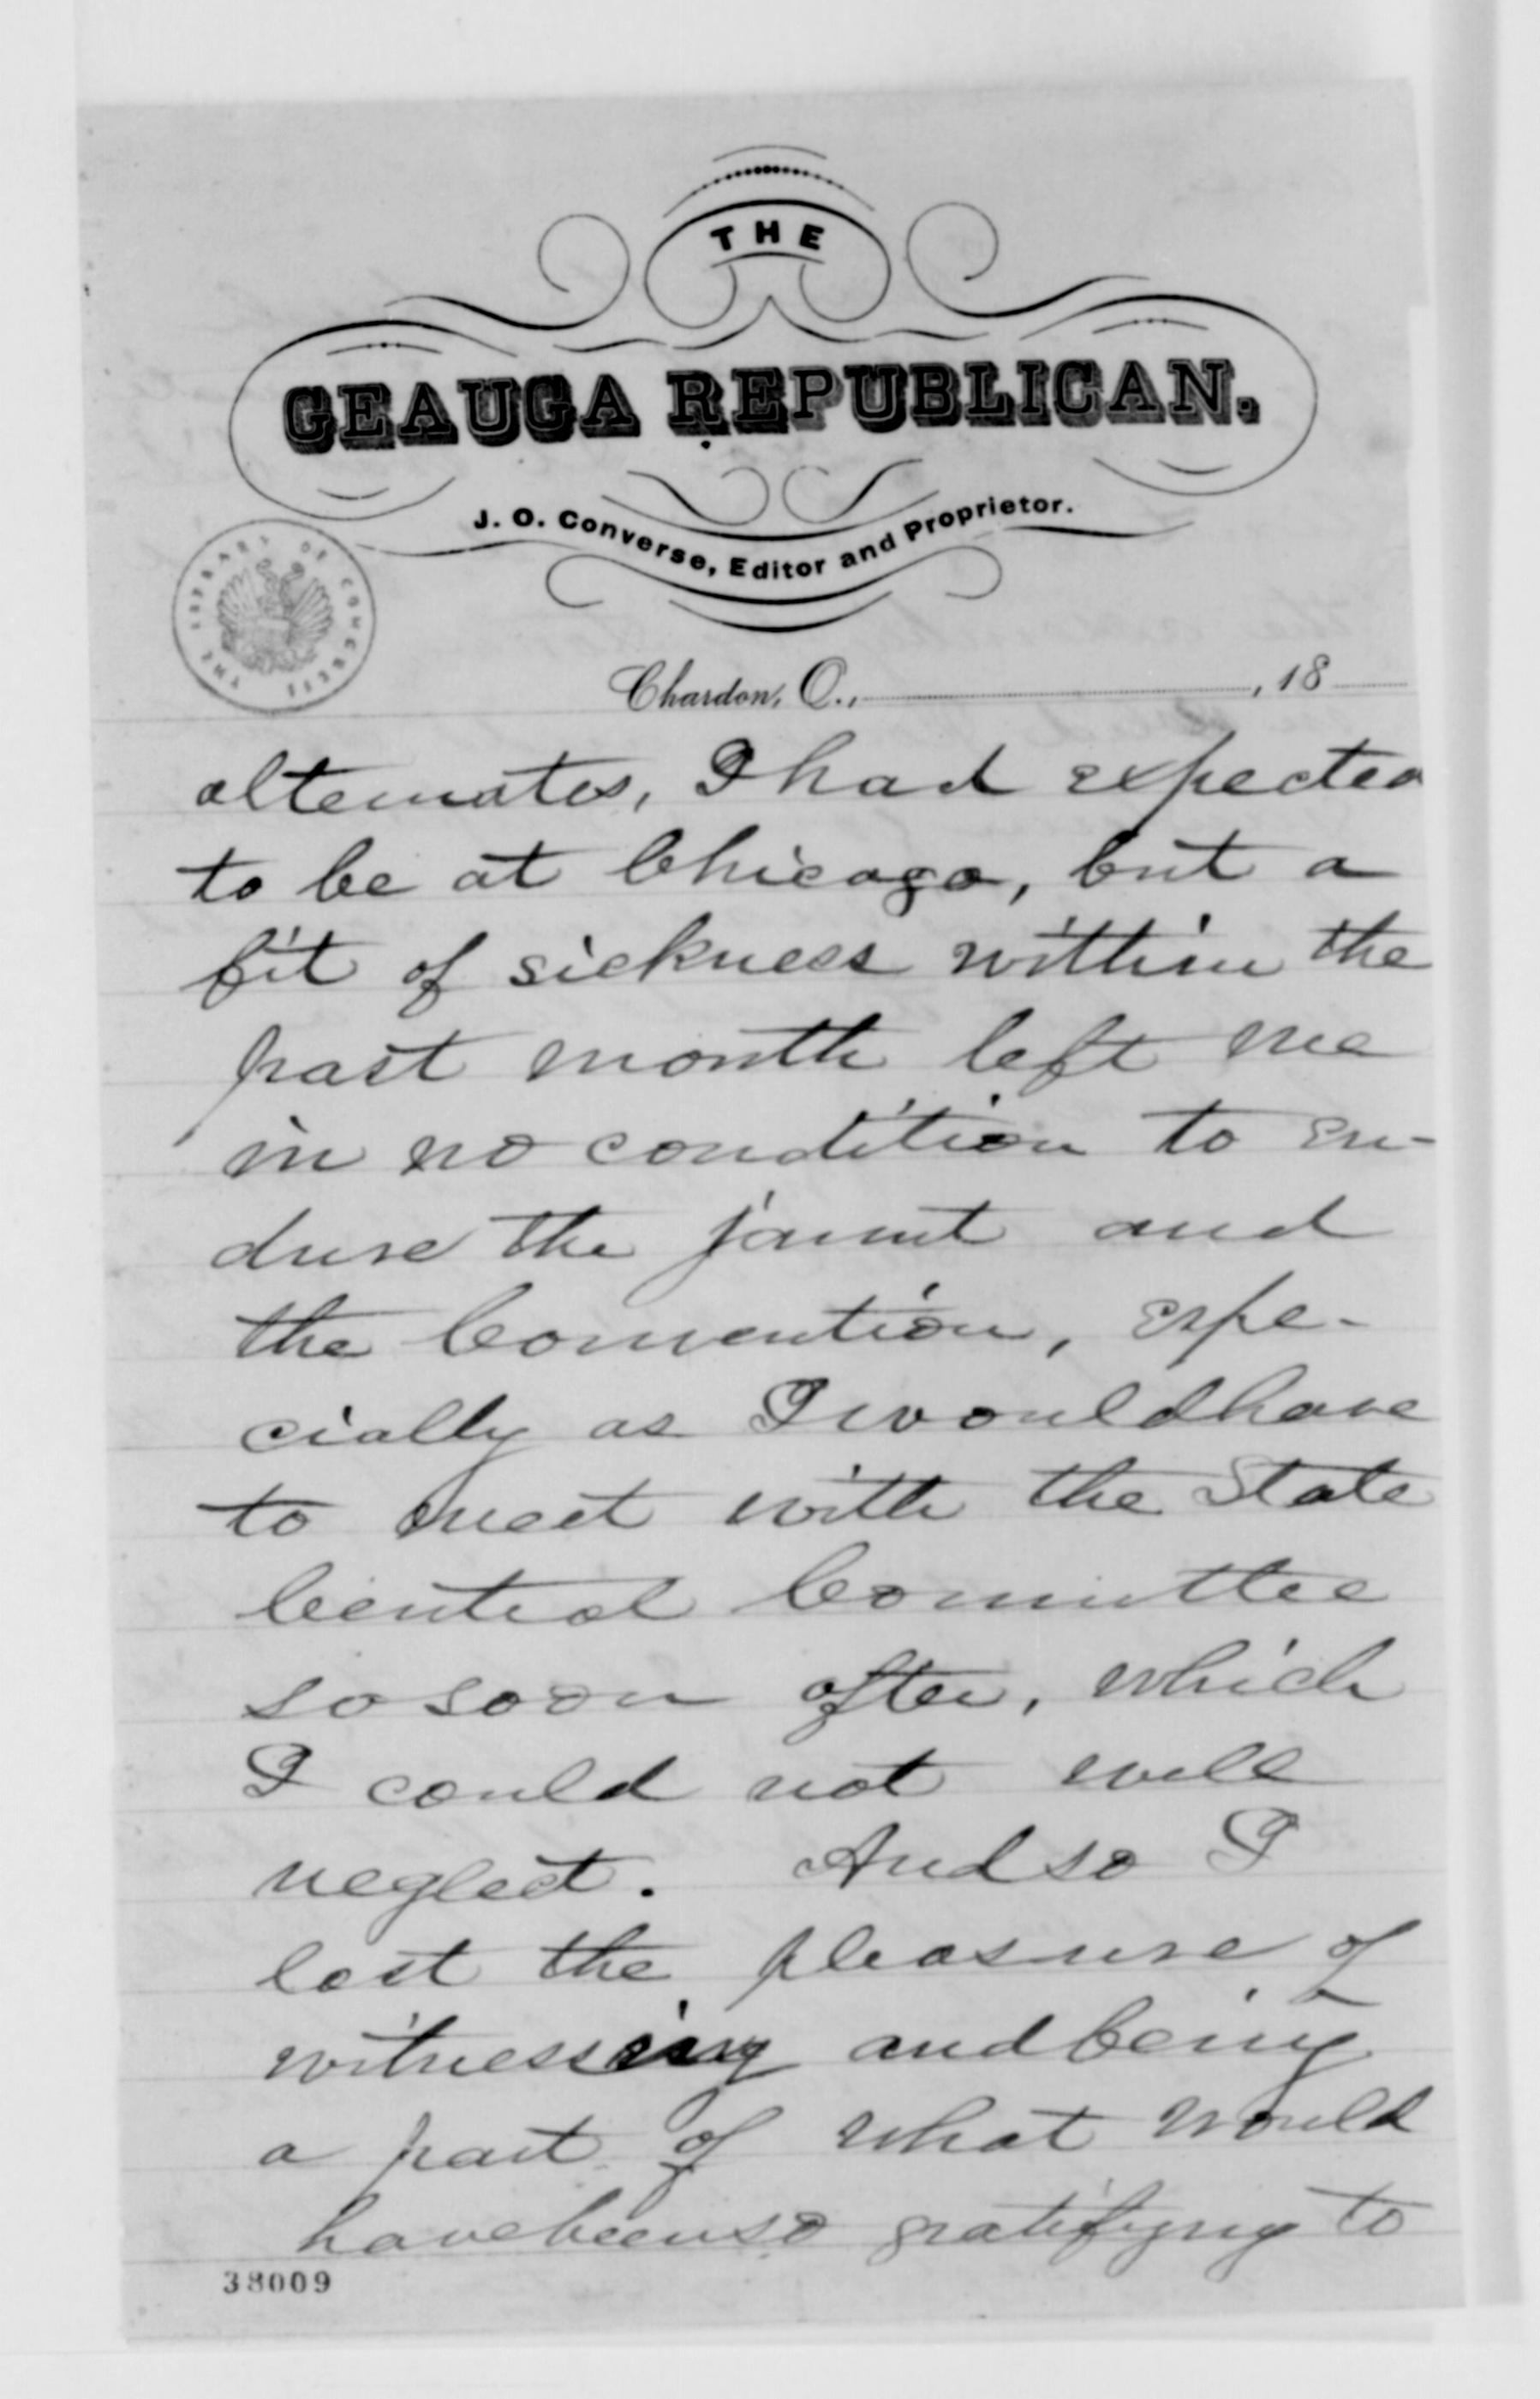 THE
GEAUGA REPUBLICAN.
J. O. Converse, Editor and Proprietor.
THE LIBRARY OF CONGRESS
Chardon, O., , 18
alternates, I had expected
to be at Chicago, but a
fit of sickness within the
past month left me
in no condition to en-
dure the jaunt and
the Convention, espe-
cially as I would have
to meet with the State
Central Committee
so soon after, which
I could not well
neglect. And so I
lost the pleasure of
witnessing and being
a part of what would
have been so gratifying to
38009